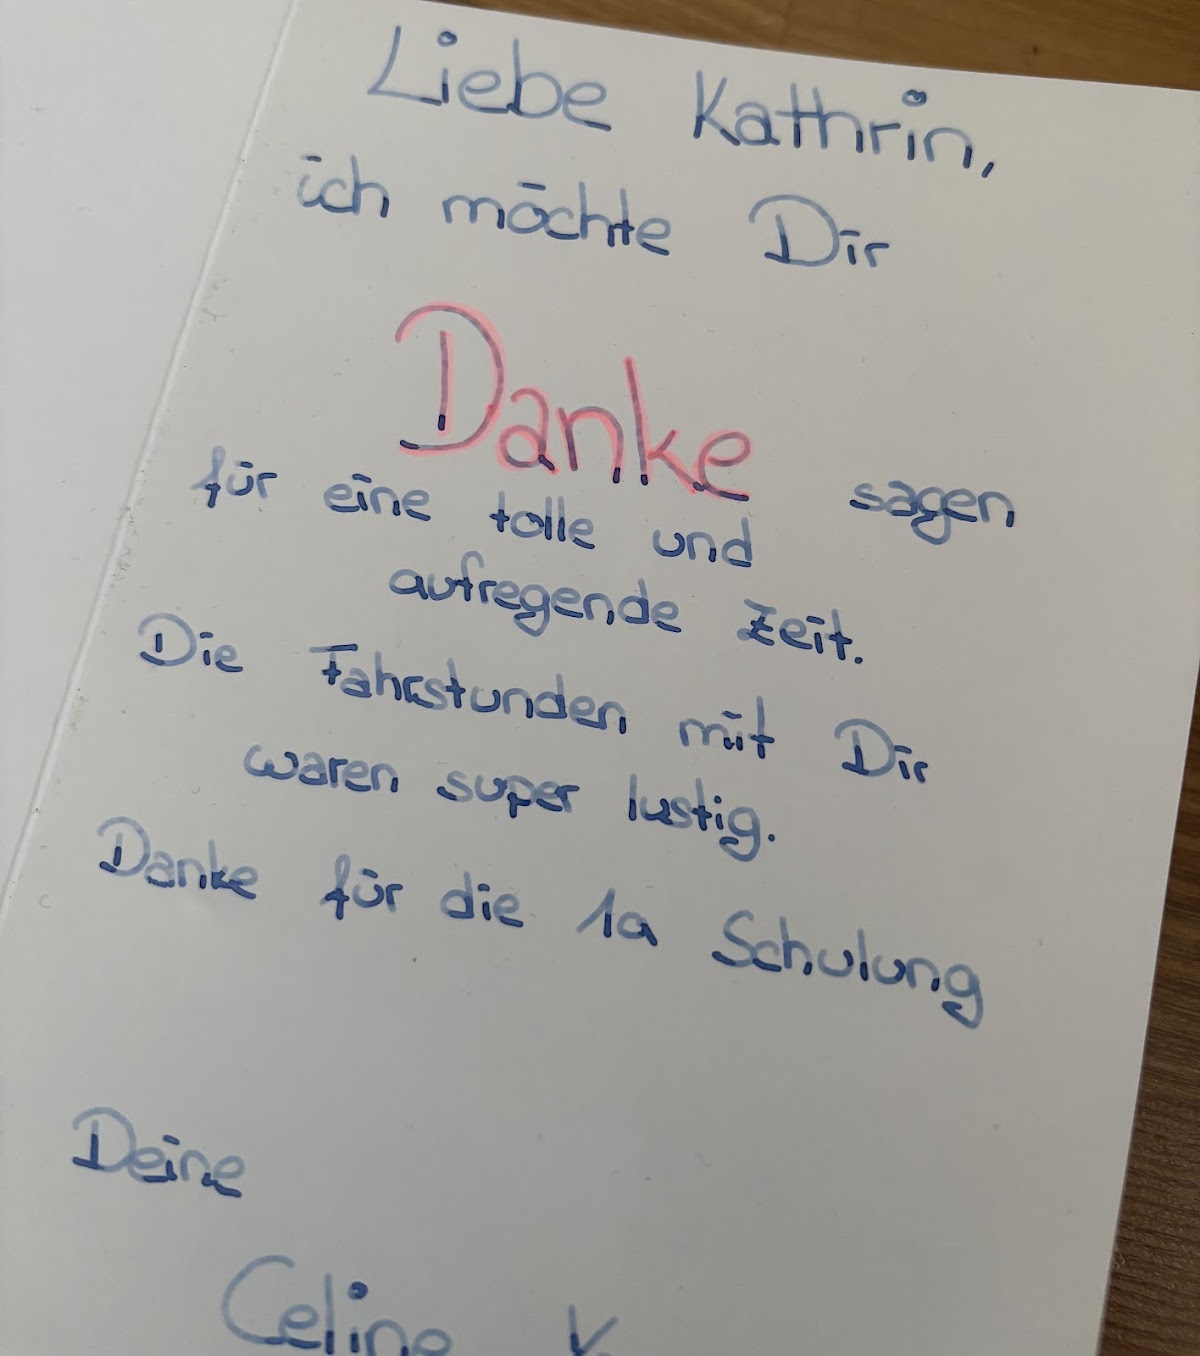 Liebe Kathrin,
ich möchte Dir
Danke sagen
für eine tolle und
aufregende Zeit.
Die Fahrstunden mit Dir
waren super lustig.
Danke für die 1a Schulung
Deine
Celine V.